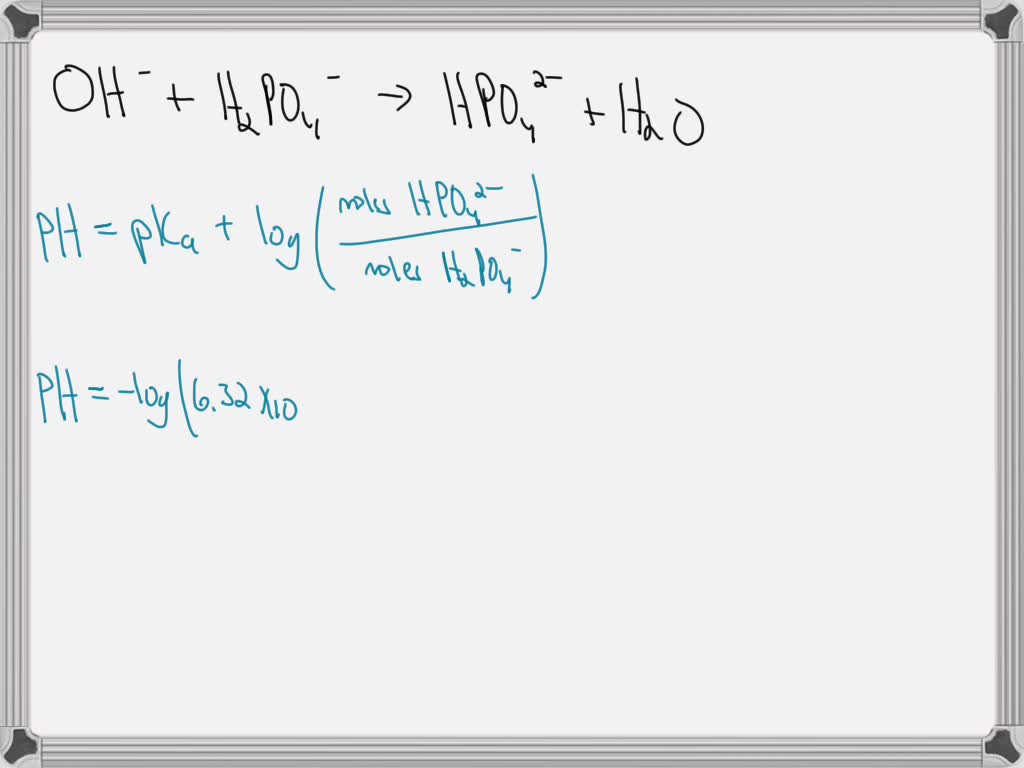 OH⁻ + H₂PO₄⁻ → HPO₄²⁻ + H₂O
PH = pKa + log (moles HPO₄²⁻ / moles H₂PO₄⁻)
PH = -log(6.32 x10